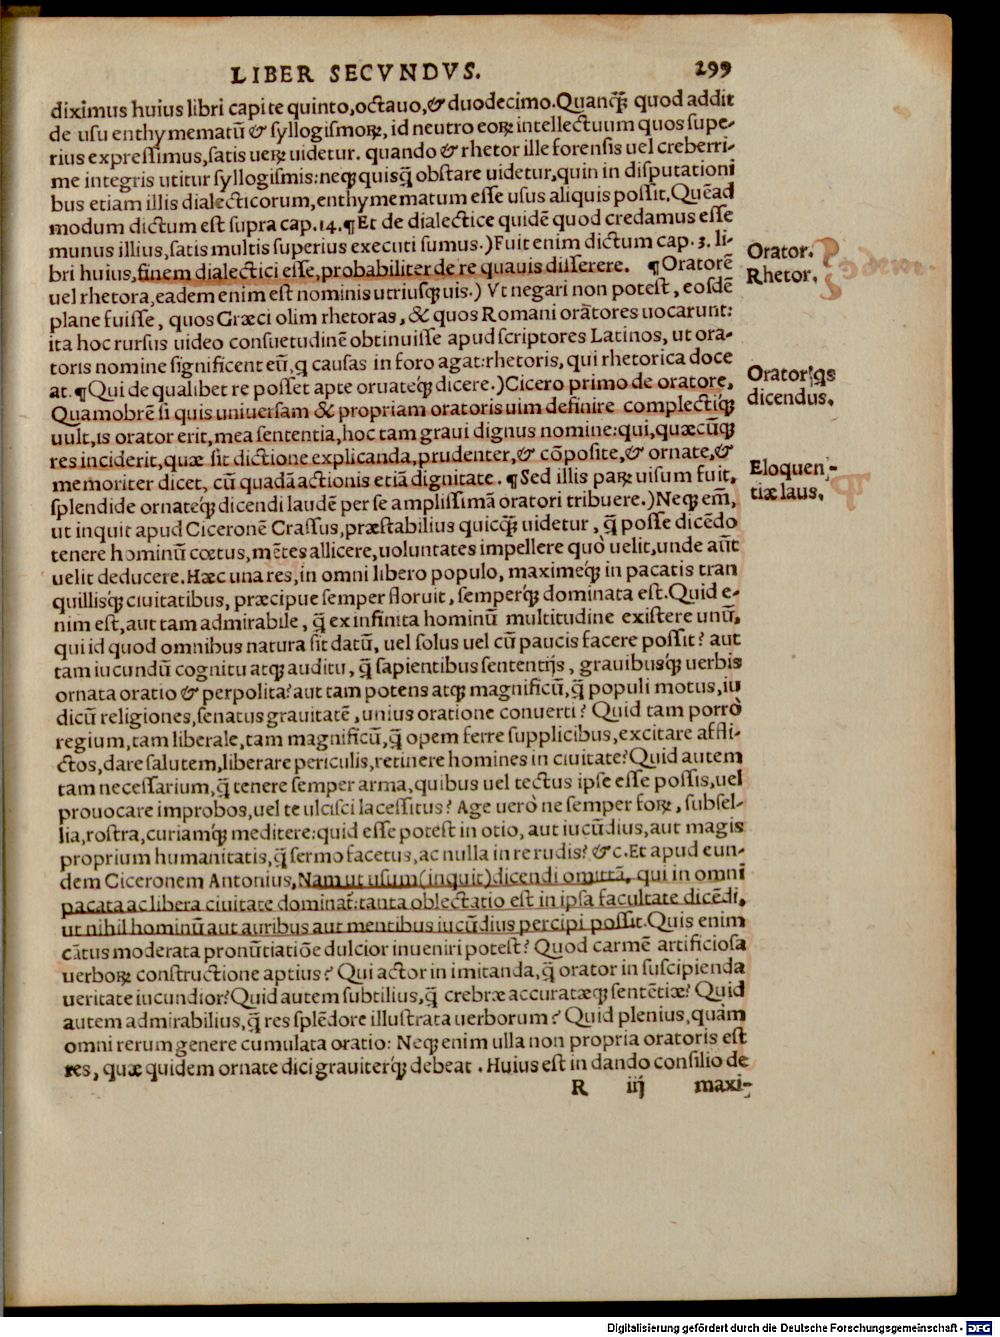 LIBER SECVNDVS. 299
diximus huius libri capite quinto, octauo, & duodecimo. Quanq̃ quod addit
de usu enthymematū & syllogismoꝝ, id neutro eoꝝ intellectuum quos supe-
rius expressimus, satis ueꝝ uidetur. quando & rhetor ille forensis uel creberri-
me integris utitur syllogismis: neqꝫ quisq̃ obstare uidetur, quin in disputationi
bus etiam illis dialecticorum, enthymematum esse usus aliquis possit. Quēad
modum dictum est supra cap. 14. ¶ Et de dialectice quidē quod credamus esse
munus illius, satis multis superius executi sumus.) Fuit enim dictum cap. 3. li-
bri huius, finem dialectici esse, probabiliter de re quauis disserere. ¶ Oratorē
Orator.
Rhetor.
uel rhetora, eadem enim est nominis utriusqꝫ uis.) Vt negari non potest, eosdē
plane fuisse, quos Græci olim rhetoras, & quos Romani oratores uocarunt:
ita hoc rursus uideo consuetudinē obtinuisse apud scriptores Latinos, ut ora-
toris nomine significent eū, q causas in foro agat: rhetoris, qui rhetorica doce
at. ¶ Qui de qualibet re posset apte ornateqꝫ dicere.) Cicero primo de oratore,
Orator qs
dicendus.
Quamobrē si quis uniuersam & propriam oratoris uim definire complectiqꝫ
uult, is orator erit, mea sententia, hoc tam graui dignus nomine: qui, quæcūqꝫ
res inciderit, quæ sit dictione explicanda, prudenter, & cōposite, & ornate, &
memoriter dicet, cū quadā actionis etiā dignitate. ¶ Sed illis paꝝ uisum fuit,
Eloquen-
tiæ laus.
splendide ornateqꝫ dicendi laudē per se amplissimā oratori tribuere.) Neqꝫ em̄,
ut inquit apud Ciceronē Crassus, præstabilius quicq̃ uidetur, q̃ posse dicēdo
tenere hominū cœtus, mētes allicere, uoluntates impellere quò uelit, unde aūt
uelit deducere. Hæc una res, in omni libero populo, maximeqꝫ in pacatis tran
quillisqꝫ ciuitatibus, præcipue semper floruit, semperqꝫ dominata est. Quid e-
nim est, aut tam admirabile, q̃ ex infinita hominū multitudine existere unū,
qui id quod omnibus natura sit datū, uel solus uel cū paucis facere possit? aut
tam iucundū cognitu atqꝫ auditu, q̃ sapientibus sententijs, grauibusqꝫ uerbis
ornata oratio & perpolita? aut tam potens atqꝫ magnificū, q̃ populi motus, iu
dicū religiones, senatus grauitatē, unius oratione conuerti? Quid tam porrò
regium, tam liberale, tam magnificū, q̃ opem ferre supplicibus, excitare affli-
ctos, dare salutem, liberare periculis, retinere homines in ciuitate? Quid autem
tam necessarium, q̃ tenere semper arma, quibus uel tectus ipse esse possis, uel
prouocare improbos, uel te ulcisci lacessitus? Age uerò ne semper foꝝ, subsel-
lia, rostra, curiamqꝫ meditere: quid esse potest in otio, aut iucūdius, aut magis
proprium humanitatis, q̃ sermo facetus, ac nulla in re rudis? &c. Et apud eun-
dem Ciceronem Antonius, Nam ut usum (inquit) dicendi omittā, qui in omni
pacata ac libera ciuitate dominat: tanta oblectatio est in ipsa facultate dicēdi,
ut nihil hominū aut auribus aut mentibus iucūdius percipi possit. Quis enim
cātus moderata pronūtiatiōe dulcior inueniri potest? Quod carmē artificiosa
uerboꝝ constructione aptius? Qui actor in imitanda, q̃ orator in suscipienda
ueritate iucundior? Quid autem subtilius, q̃ crebræ accuratæqꝫ sentētiæ? Quid
autem admirabilius, q̃ res splēdore illustrata uerborum? Quid plenius, quàm
omni rerum genere cumulata oratio: Neqꝫ enim ulla non propria oratoris est
res, quæ quidem ornate dici grauiterqꝫ debeat. Huius est in dando consilio de
R iij maxi-
Digitalisierung gefördert durch die Deutsche Forschungsgemeinschaft - DFG